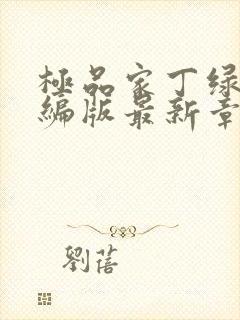 極品家丁绿
編版最新章
劉蓓